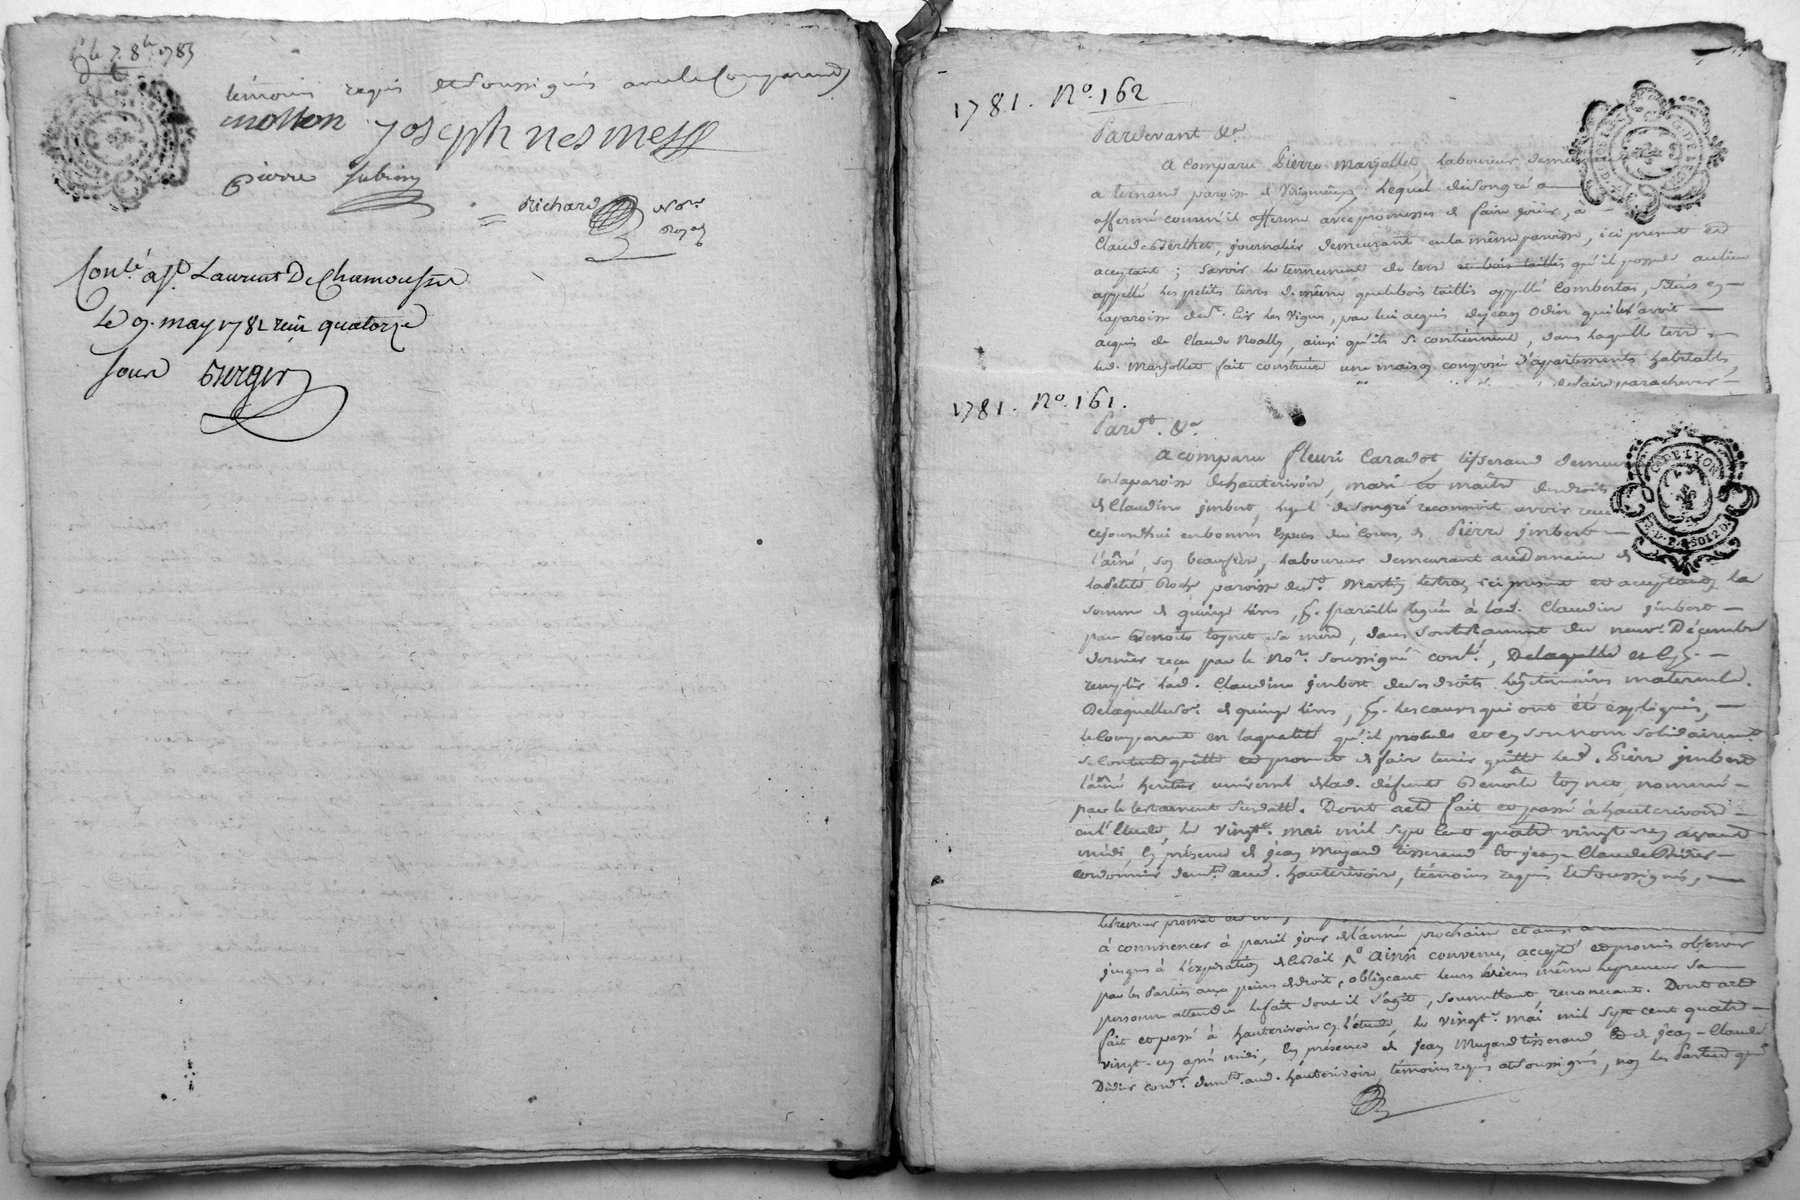 témoins requis et soussignés avec le Comparand
mollon joseph nesme
pierre
Richard No.re
Royal
Con.lé à S.t Laurent De Chamousset
Le 9. may 1781 reçu quatorze
sous Berger
1781. No. 162
Pardevant &a
a comparu Pierre Marjollet, laboureur
a ternand paroisse de Virigneux, Lequel de son gré a
affermé comme il afferme avec promesse de faire joüir, a
Claude Berthet, journalier demeurant en la même paroisse, ici present et
acceptant; savoir le tennement de terre et bois taillis qu'il possede au lieu
appellé Les petites terres de même que le bois taillis appellé Combertas, situés en
la paroisse de S.t Cir les Vignes, par lui acquis de jean Odin qui les avoit
acquis de Claude Noally, ainsi qu'ils se contiennent, dans laquelle terre
led. Marjollet fait construire une maison composée d'apartements habitables,
de faire parachever
1781. No. 161.
Pard.t &a
a comparu fleuri Caradot, tisserand
en la paroisse de hauterivoire, mari et maître des droits
de Claudine jmbert, lequel de son gré reconnoit avoir reçu
cejourdhui en bonnes especes du Cours, de Pierre jmbert
l'aîné, son beaufrere, laboureur demeurant au Domaine de
la petite Roche paroisse de S.t Martin lestra, ici present et acceptant la
somme de quinze livres, pareille leguée à lad. Claudine jmbert
par Benoite toynet sa mere, dans son testament du neuf Décembre
dernier reçu par le No.re soussigné con.lé, De laquelle
remplir lad. Claudine jmbert de ses droits légitimaires maternels.
De laquelle so.e de quinze livres, les causes qui ont été expliquées,
le Comparant en la qualité qu'il procede et en son nom solidairement
se contente quitte et promet de faire tenir quitte led. Pierre jmbert
l'aîné heritier universel de lad. défunte Benoîte toynet, nommé
par le testament susdatté. Dont acte fait et passé à hauterivoire
en l'Etude, le vingt. mai mil sept cent quatre vingt un avant
midi, en présence de jean Mugard tisserand et jean-Claude Didier
cordonnier dem.ts aud. hauterivoire, témoins requis et soussignés,
à commencer à pareil jour de l'année prochaine
jusques à l'expiration de ce Bail. Ainsi convenu, accepté et promis observer
par les Parties aux peines de droit, obligeant leurs biens même le preneur sa
personne attendu le fait dont il s'agit, soumettant renonceant. Dont acte
fait et passé à hauterivoire en l'étude, le vingt. mai mil sept cent quatre
vingt-un après midi, en présence de jean Mugard tisserand et de jean-Claude
Didier cord.r dem.ts aud. hauterivoire, témoins requis et soussignés, non les Parties